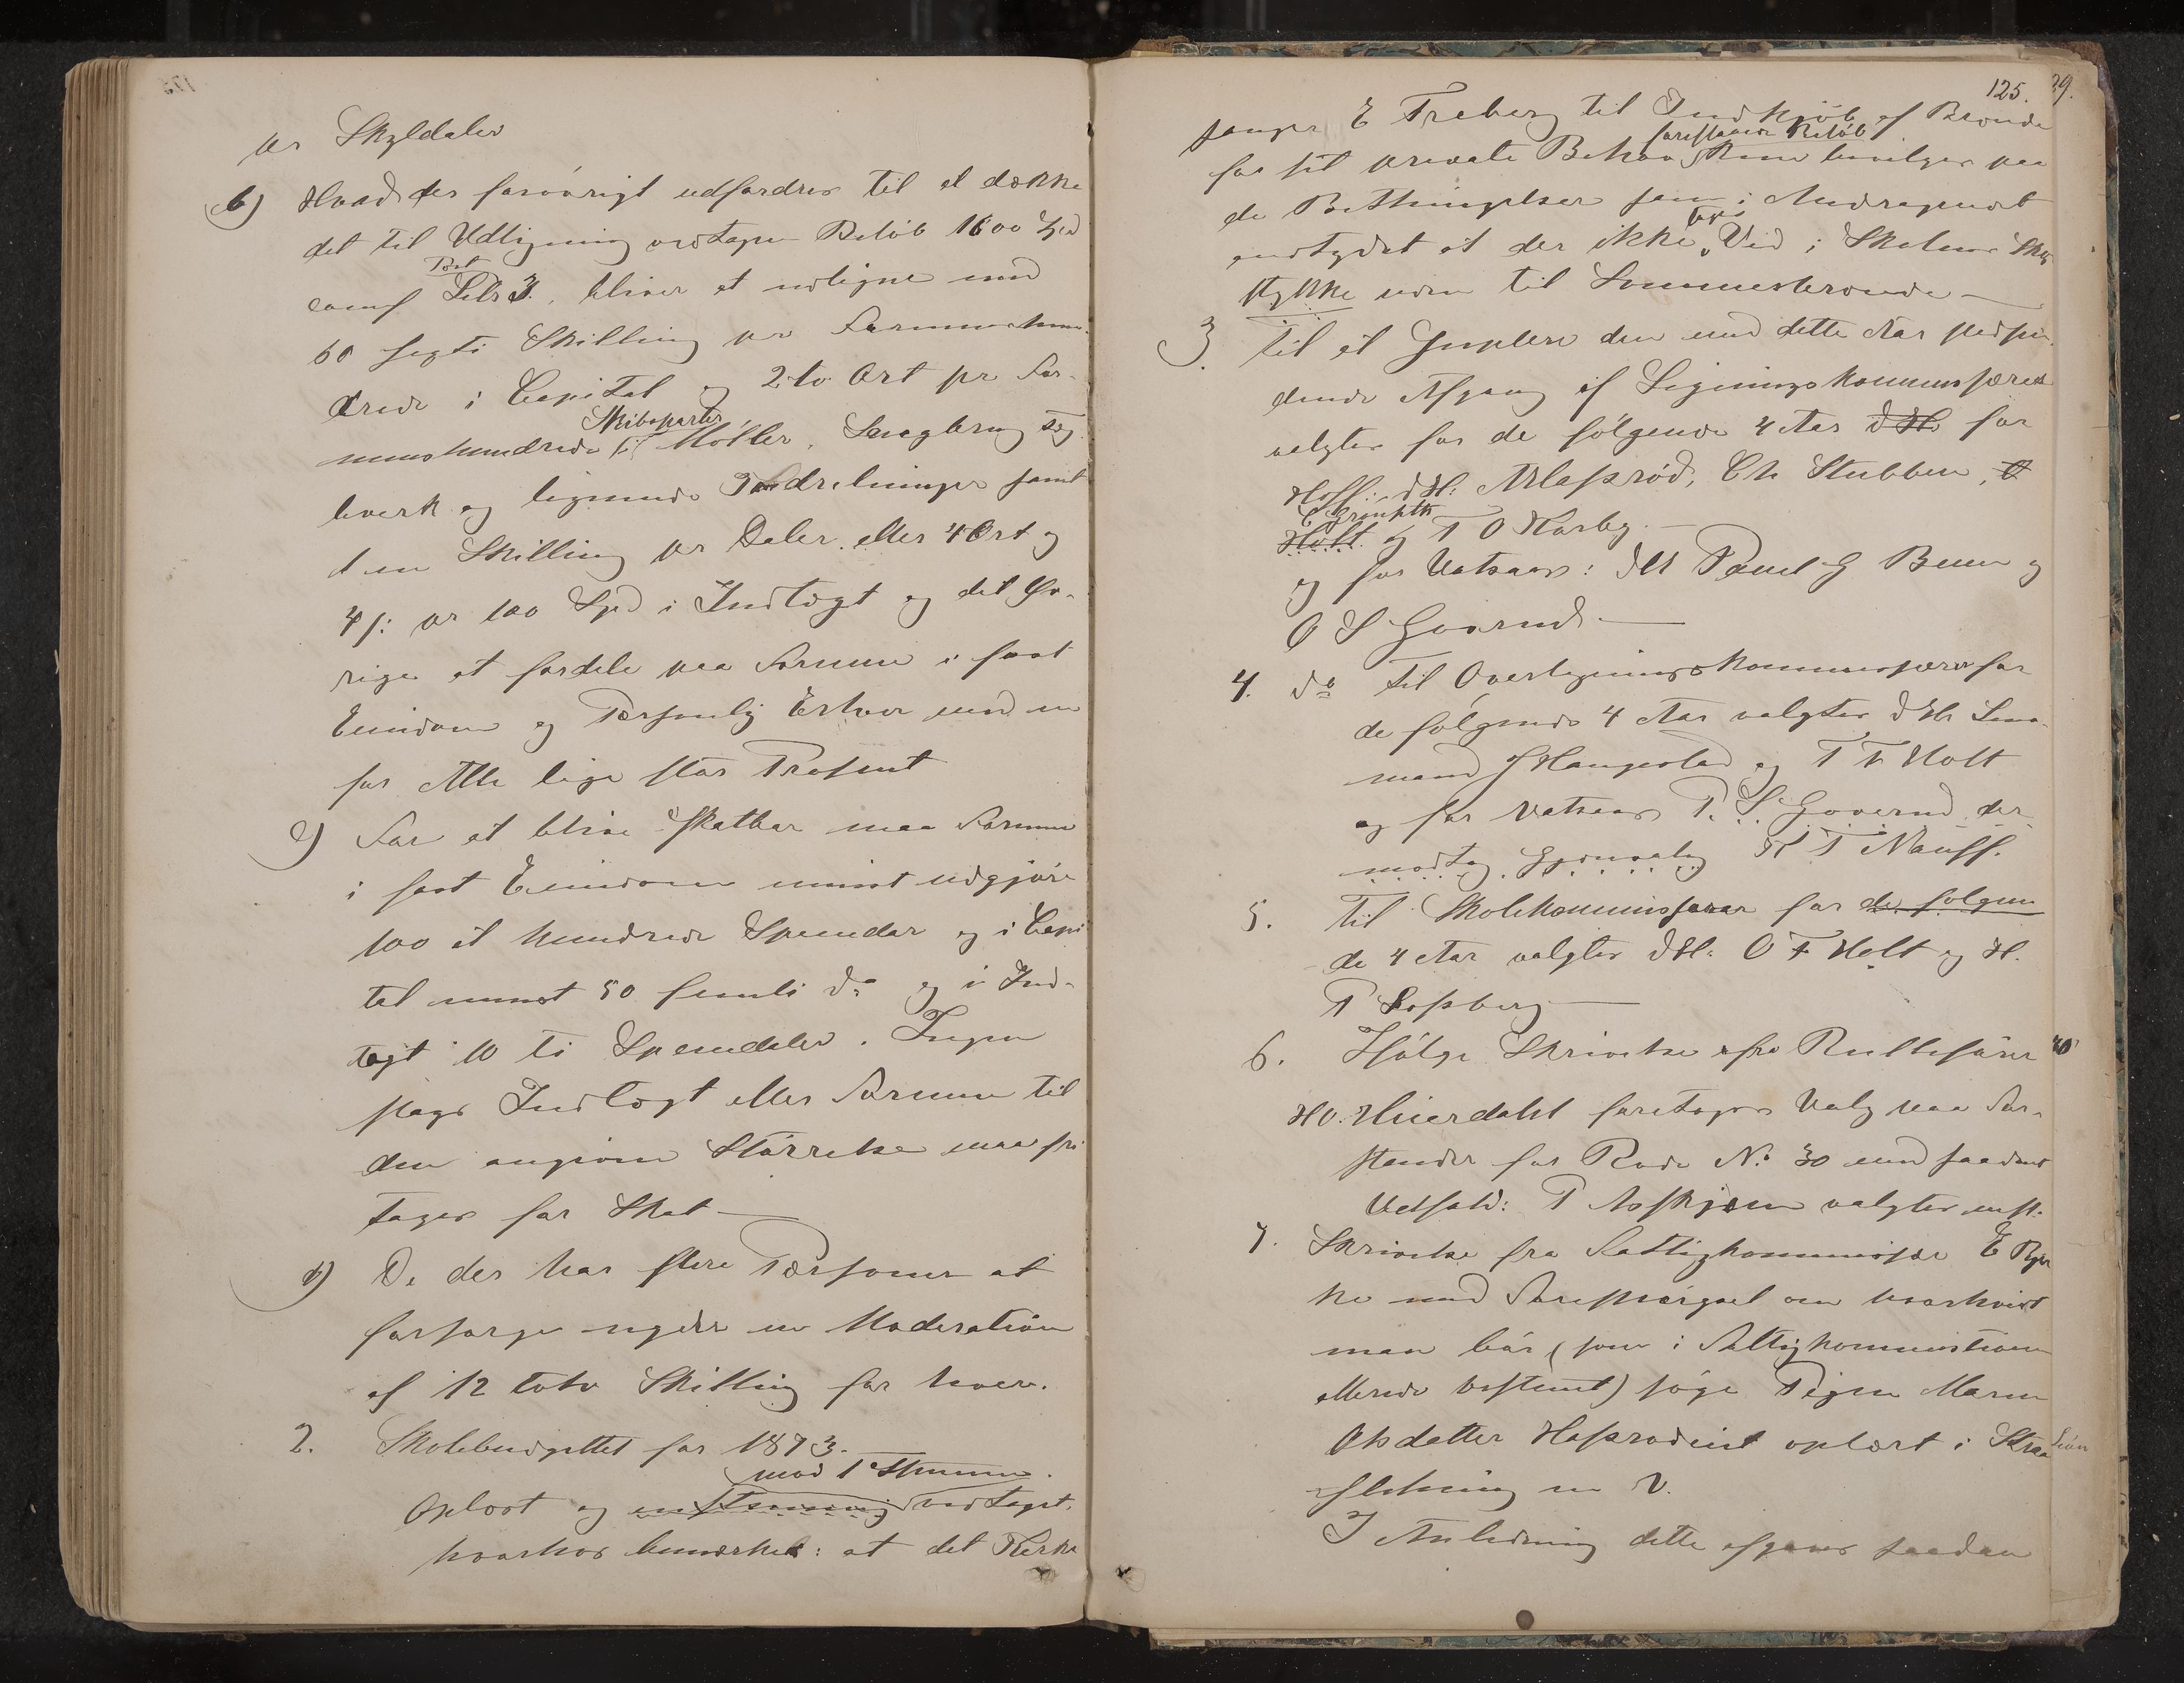 pr Skyldaler
b) Hvad der forøvrigt udfordres til at dække
det til Udligning vedtagne Beløb 1600 Spd
conf Post Litr 3., bliver at udligne med
60 sexti Skilling pr Formueshun-
drede i Capital og 2 to Ort pr For-
mueshundrede i Skibsparter, Møller, Saugbrug Teg-
lverk og lignende Indretninger samt
1 en Skilling pr Daler eller 4 Ort og
4 s: pr 100 Spd i Indtægt og det Øv-
rige at fordele paa Formue i fast
Eiendom og Personlig Erhver med en
for Alle lige stor Prosent
c) For at blive skatbar maa Formue
i fast Eiendom mindst udgjøre
100 et hundrede Speciedar og i Capi
tal mindst 50 femti do og i Ind-
tægt 10 ti Speciedaler. Ingen
slags Indtægt eller Formue til
den angivne Størrelse maa fri
tages for Skat
d) De der har flere Personer at
forsørge nyder en Moderation
af 12 tolv Skilling for hver.
2. Skolebudgettet for 1873.
mod 1 Stemme.
Oplæst og enstemmig vedtaget,
hvorhos bemærkes: at det Kirke
125.
29.
sanger E Freberg til Indkjøb af Brænde
for sit private Behov foreslaaede Beløb kun bevilges paa
de Betingelser som i Andragendet
antydet at der ikke er Ved i Skolens Skov
stykke uden til Sommerbrænde
3. Til at Supplere den med dette Aar ved fin-
dende Afgang af Ligningskommissærer
valgtes for de følgende 4 Aar d Hr for
Hoff: d Hr: A Klaprød, Ch Stubben,
C Grønsth
Holt og T O Karby.
og for Vatnaas: d Hr Poul G Buen og
O S Goverud
4. do Til Overligningskommissærer for
de følgende 4 Aar valgtes d Hr Lens-
mand J Haugestad og T T Holt
og for Vatnaas P. S. Goverud der-
modtog Gjenvalg T T Nauff.
5. Til Skolekommissærer for de følgen
de 4 Aar valgtes d Hr: O T Holt og H.
P Lofsberg
6. Ifølge Skrivelse fra Rullefører
HO. Huerdahl foretages Valg paa For-
stander for Rode No 30 med saadant
Udfald: P Askjem valgtes enst.
7. Skrivelse fra Fattigkommissær E Bjer
ke med Forespørgsel om hvorvidt
man bør (som i Fattigkommissionen
allerede bestemt) søge Pigen Maren
Olsdatter Hasrødeiet oplært i Straa
fletning m V.
I Anledning dette afgaves saadan